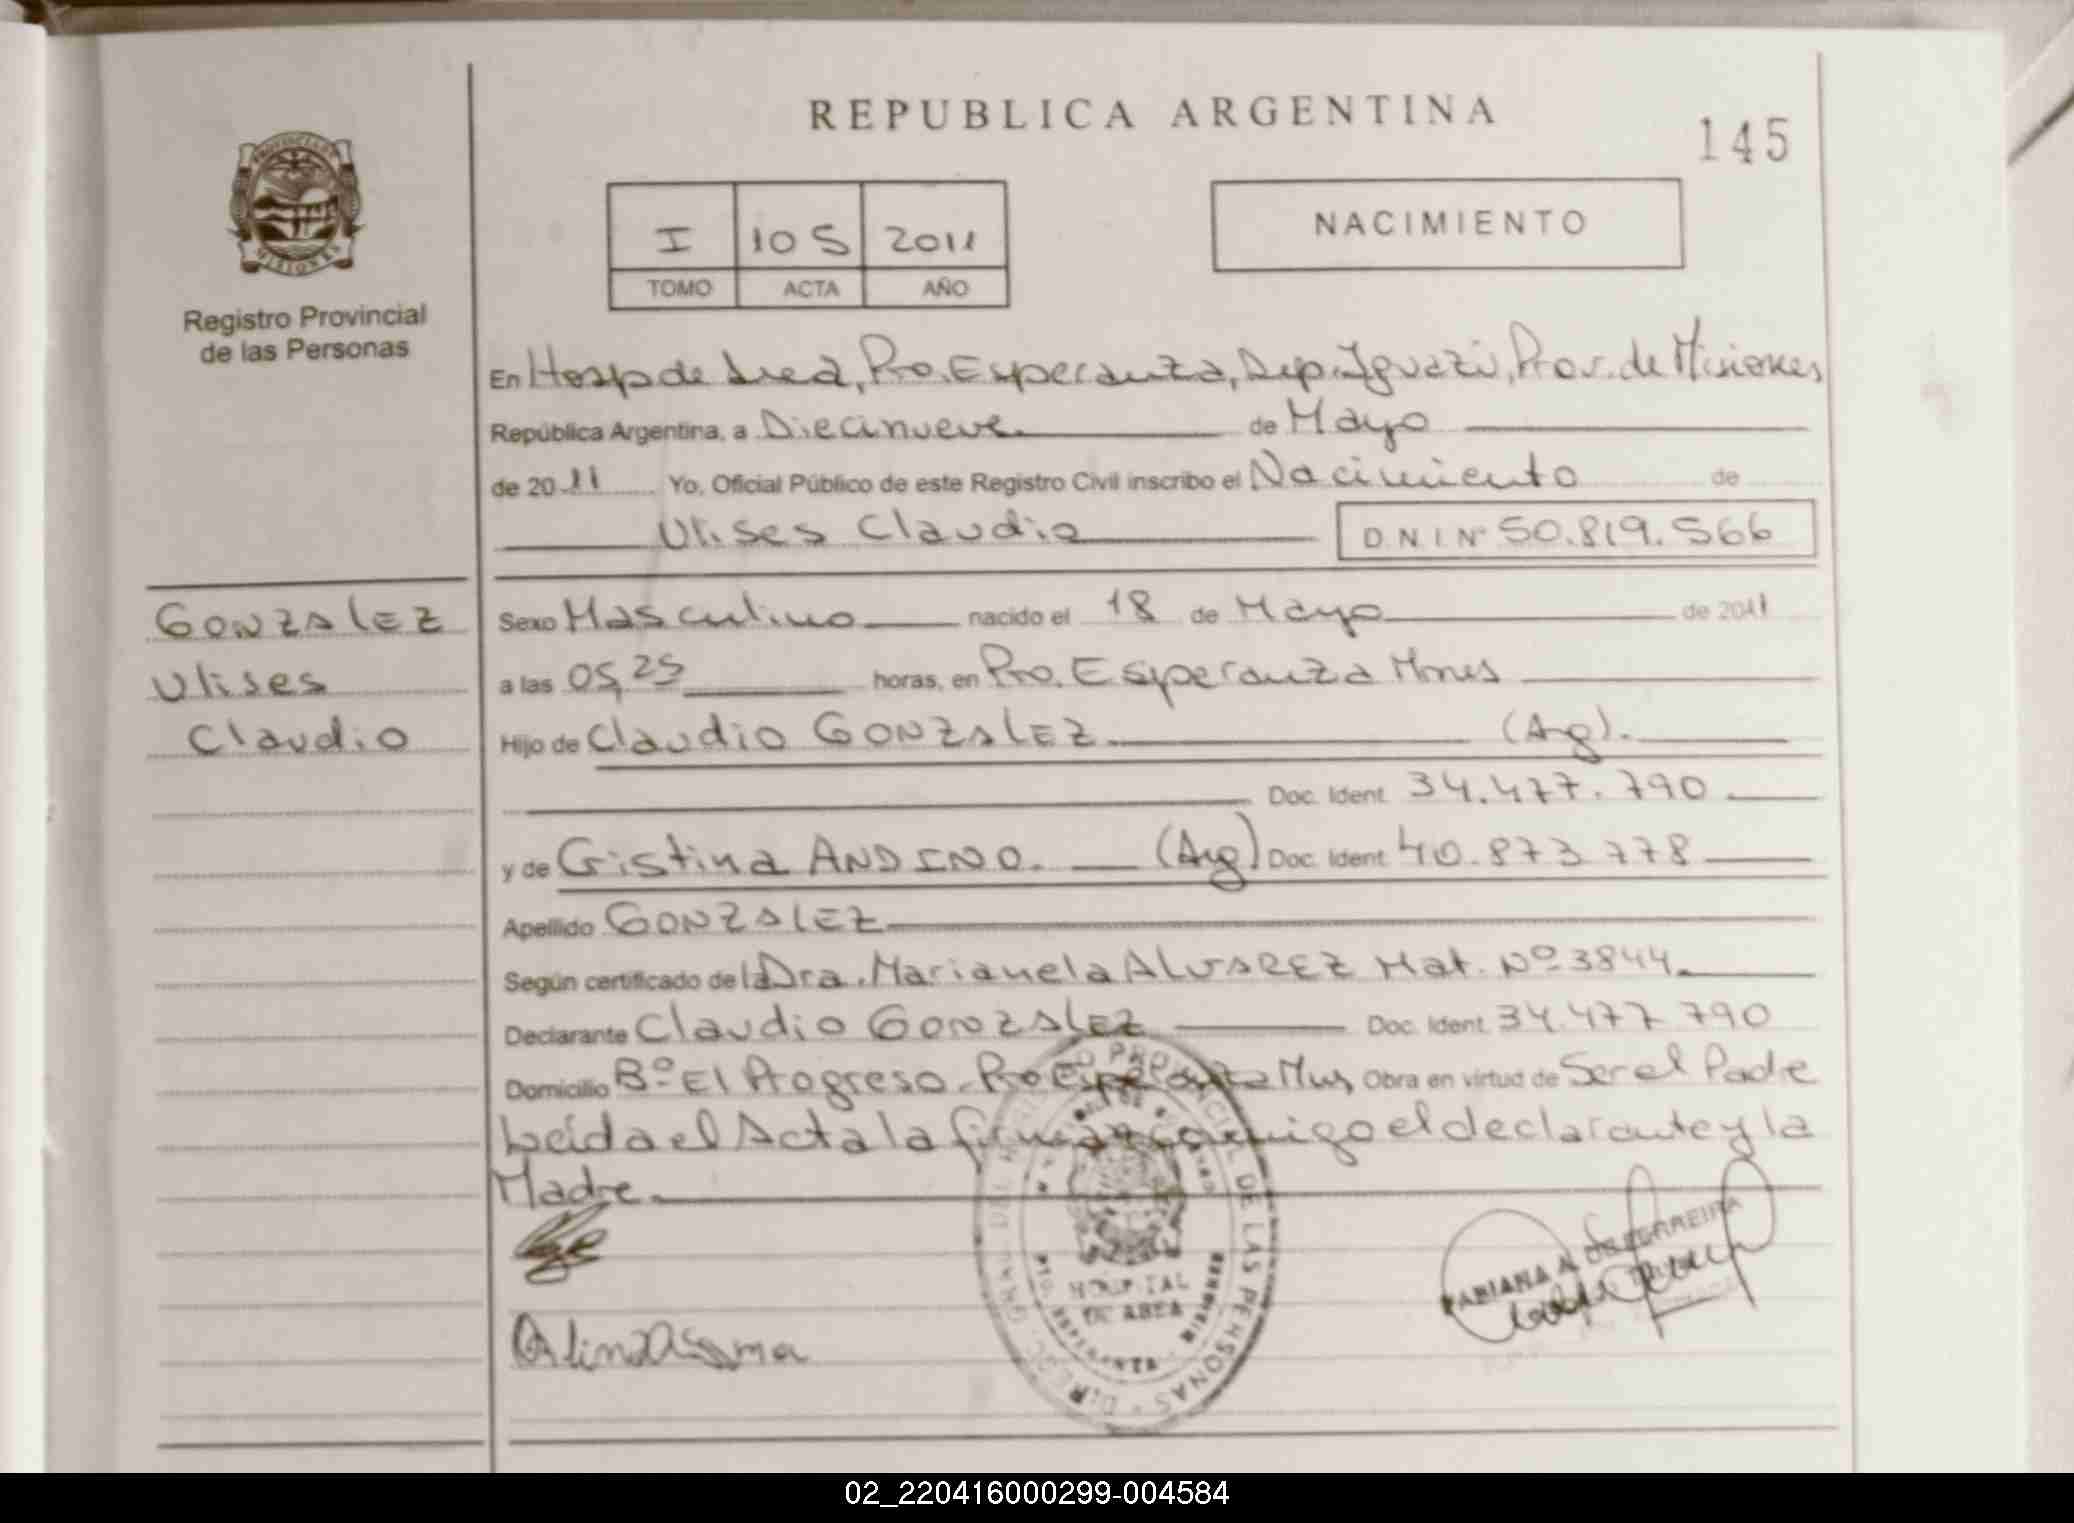 REPUBLICA ARGENTINA
145
PROVINCIA DE
MISIONES
Registro Provincial
de las Personas
I 105 2011
TOMO ACTA AÑO
NACIMIENTO
En Hosp de Area, Pto. Esperanza, Dep. Iguazú, Prov. de Misiones
República Argentina, a Diecinueve. de Mayo
de 2011 Yo, Oficial Público de este Registro Civil inscribo el Nacimiento de
Ulises Claudio D.N.I. Nº 50.819.566
GONZALEZ
Ulises
Claudio
Sexo Masculino nacido el 18 de Mayo de 2011
a las 05,25 horas, en Pto. Esperanza Mnes
Hijo de Claudio GONZALEZ (Arg).
Doc. Ident. 34.477.790
y de Cristina ANDINO. (Arg) Doc. Ident. 40.873.778
Apellido GONZALEZ
Según certificado de la Dra. Marianela ALVAREZ Mat. Nº 3844.
Declarante Claudio GONZALEZ Doc. Ident. 34.477.790
Domicilio Bº El Progreso. Pto Esperanza Mns, Obra en virtud de Ser el Padre
Leida el Acta la firman conmigo el declarante y la
Madre.
DEL REGISTRO PROVINCIAL DE LAS PERSONAS
HOSPITAL
DE AREA
PTO. ESPERANZA - MISIONES
FABIANA A. de FERREIRA
02_220416000299-004584